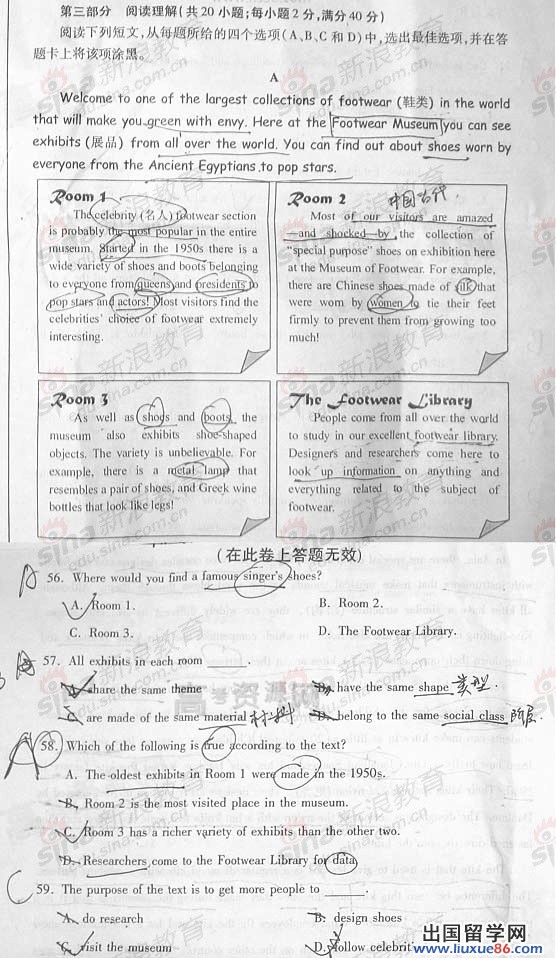 第三部分 阅读理解(共20小题;每小题2分,满分40分)
阅读下列短文,从每题所给的四个选项(A、B、C和D)中,选出最佳选项,并在答
题卡上将该项涂黑。
A
Welcome to one of the largest collections of footwear (鞋类) in the world
that will make you green with envy. Here at the Footwear Museum you can see
exhibits (展品) from all over the world. You can find out about shoes worn by
everyone from the Ancient Egyptians to pop stars.
Room 1
The celebrity (名人) footwear section
is probably the most popular in the entire
museum. Started in the 1950s there is a
wide variety of shoes and boots belonging
to everyone from queens and presidents to
pop stars and actors! Most visitors find the
celebrities' choice of footwear extremely
interesting.
Room 2 中国古代
Most of our visitors are amazed
—and shocked—by the collection of
"special purpose" shoes on exhibition here
at the Museum of Footwear. For example,
there are Chinese shoes made of silk that
were worn by women to tie their feet
firmly to prevent them from growing too
much!
Room 3
As well as shoes and boots, the
museum also exhibits shoe-shaped
objects. The variety is unbelievable. For
example, there is a metal lamp that
resembles a pair of shoes, and Greek wine
bottles that look like legs!
The Footwear Library
People come from all over the world
to study in our excellent footwear library.
Designers and researchers come here to
look up information on anything and
everything related to the subject of
footwear.
(在此卷上答题无效)
A 56. Where would you find a famous singer's shoes?
A. Room 1. B. Room 2.
C. Room 3. D. The Footwear Library.
57. All exhibits in each room ____.
A. share the same theme B. have the same shape 类型
C. are made of the same material 材料 D. belong to the same social class 阶层
A 58. Which of the following is true according to the text?
A. The oldest exhibits in Room 1 were made in the 1950s.
B. Room 2 is the most visited place in the museum.
C. Room 3 has a richer variety of exhibits than the other two.
D. Researchers come to the Footwear Library for data.
C 59. The purpose of the text is to get more people to ____.
A. do research B. design shoes
C. visit the museum D. follow celebrit
出国留学网
www.liuxue86.com
sina新浪教育
edu.sina.com.cn
高考资源网